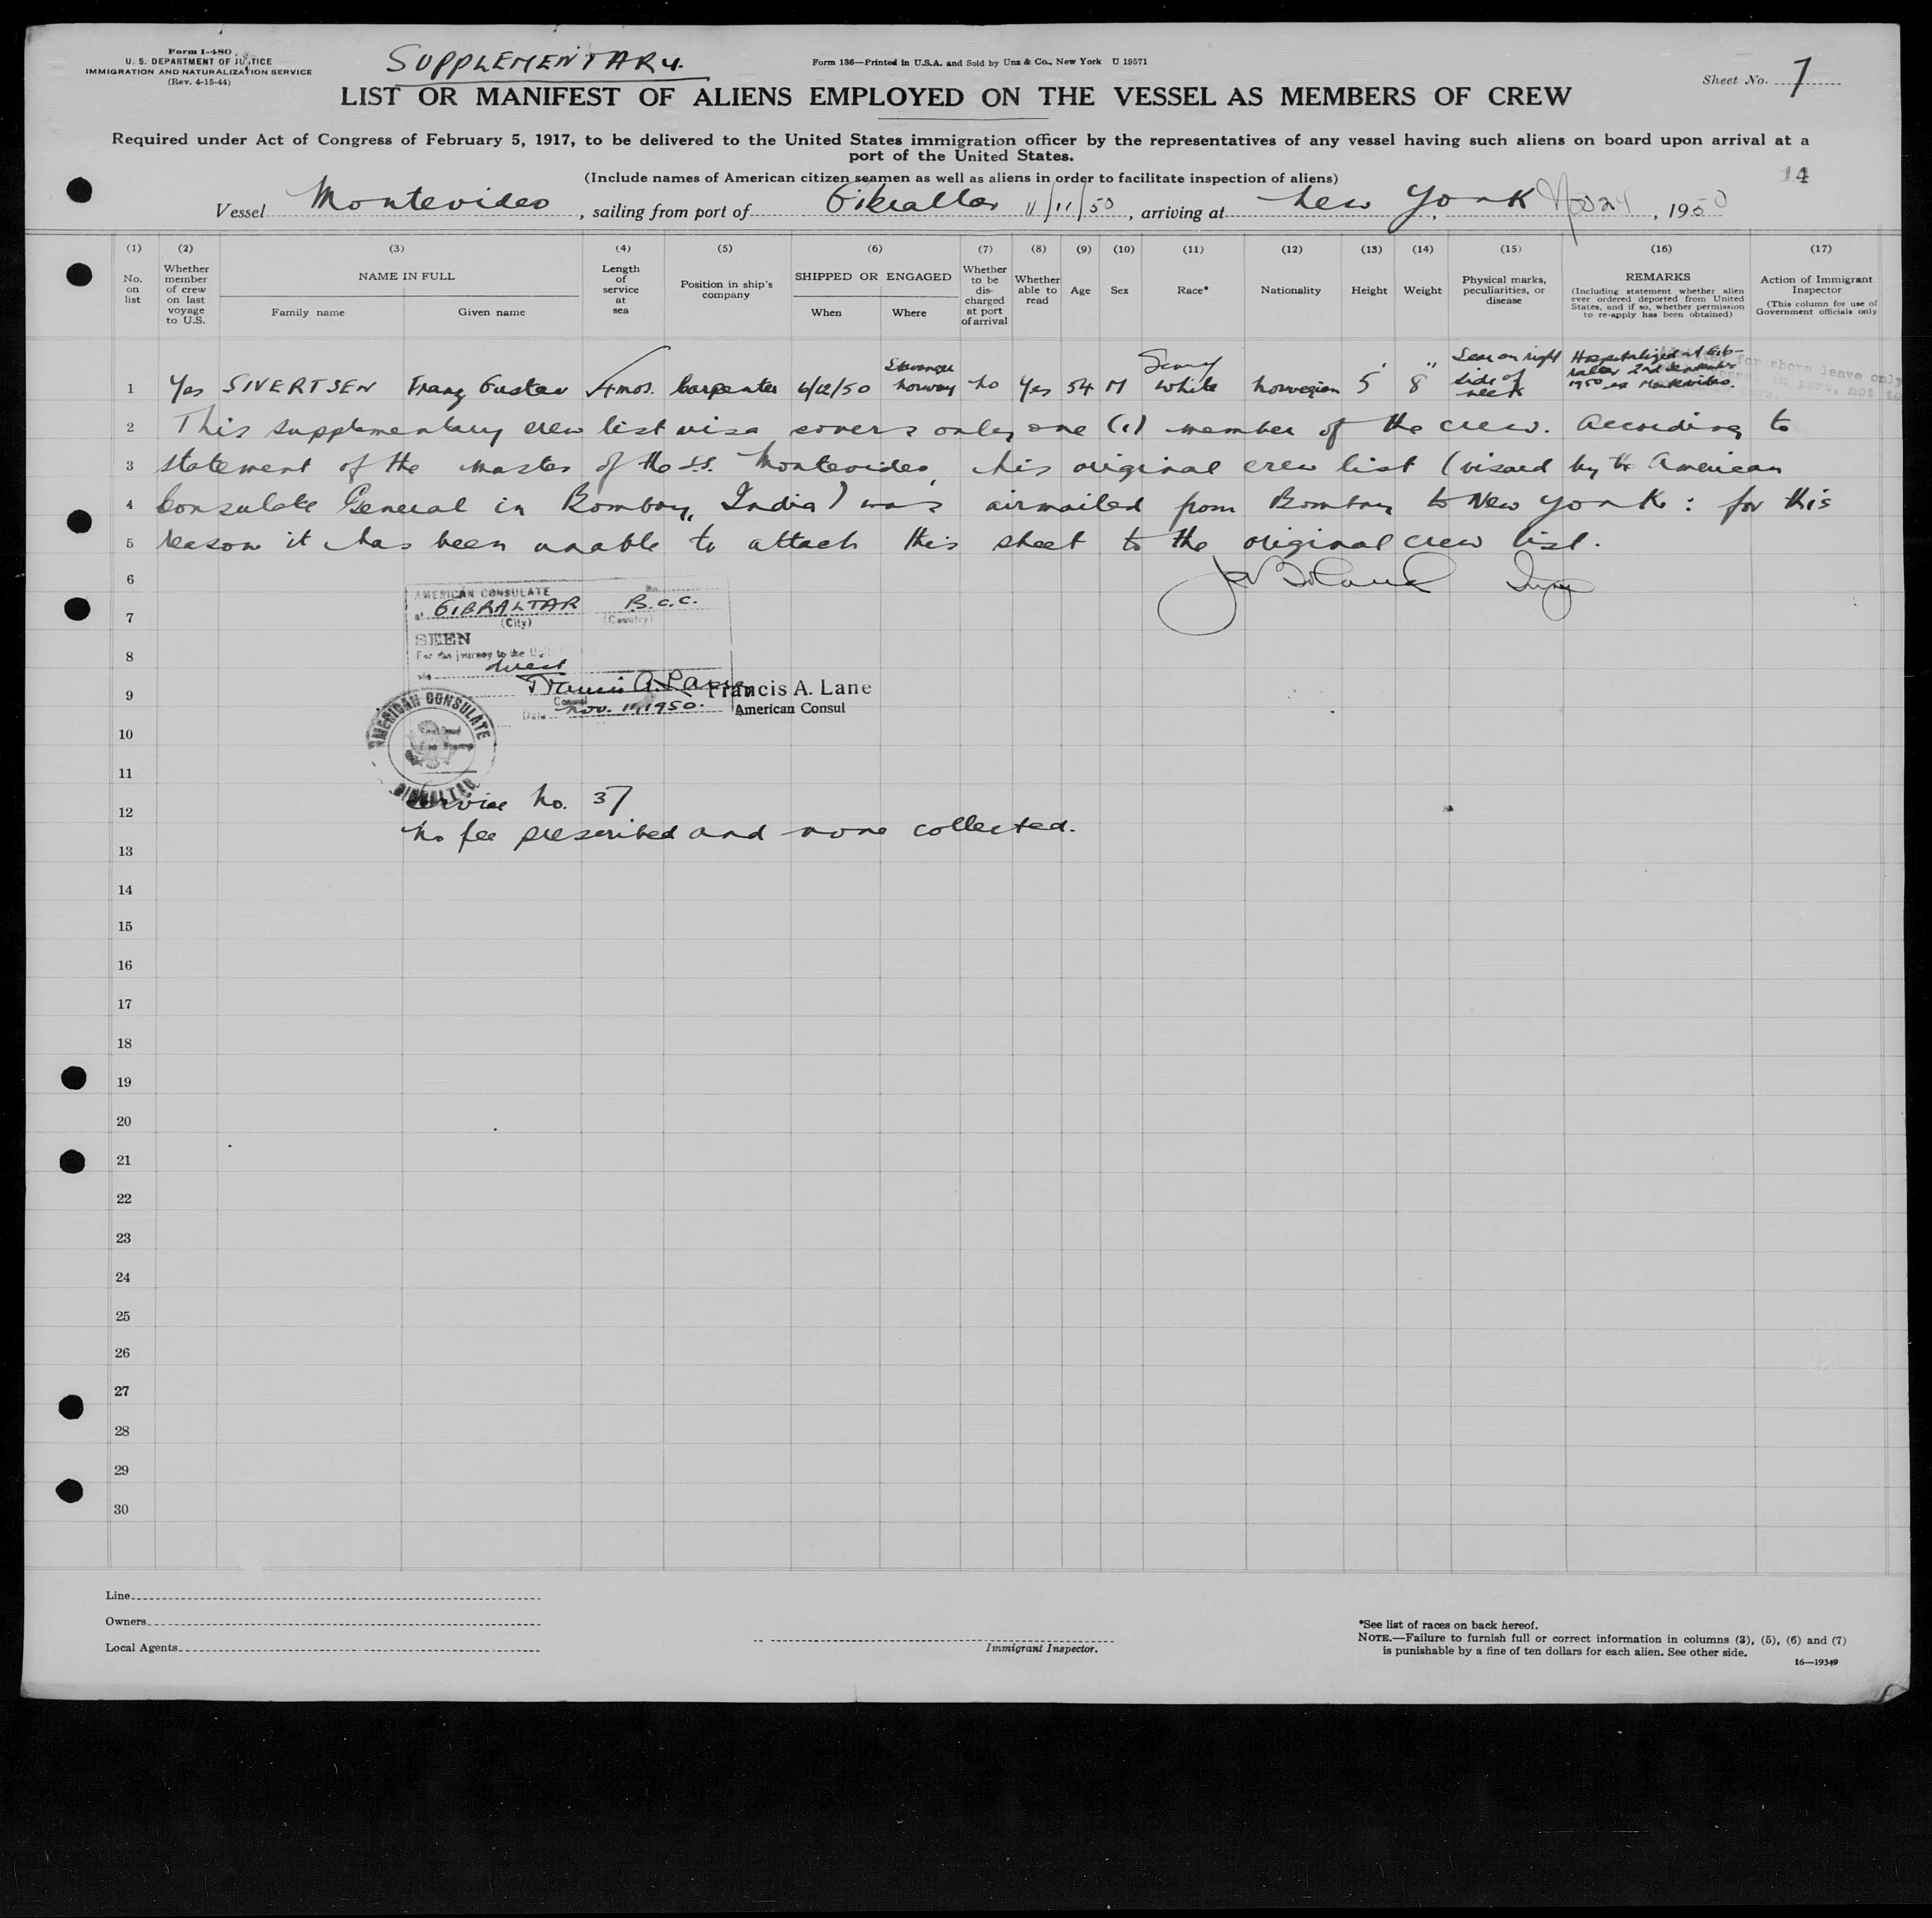 Form I-480
U. S. DEPARTMENT OF JUSTICE
IMMIGRATION AND NATURALIZATION SERVICE
(Rev. 4-15-44)
SUPPLEMENTARY.
Form 136—Printed in U.S.A. and Sold by Unz & Co., New York U 19571
Sheet No. 1
LIST OR MANIFEST OF ALIENS EMPLOYED ON THE VESSEL AS MEMBERS OF CREW
Required under Act of Congress of February 5, 1917, to be delivered to the United States immigration officer by the representatives of any vessel having such aliens on board upon arrival at a
port of the United States.
(Include names of American citizen seamen as well as aliens in order to facilitate inspection of aliens)
14
Vessel Montevideo, sailing from port of Gibraltar 11/11/50, arriving at New York Nov 24, 1950
(1) (2) (3) (4) (5) (6) (7) (8) (9) (10) (11) (12) (13) (14) (15) (16) (17)
No. on list
Whether member of crew on last voyage to U.S.
NAME IN FULL
Family name Given name
Length of service at sea
Position in ship's company
SHIPPED OR ENGAGED
When Where
Whether to be discharged at port of arrival
Whether able to read
Age
Sex
Race*
Nationality
Height
Weight
Physical marks, peculiarities, or disease
REMARKS
(Including statement whether alien ever ordered deported from United States, and if so, whether permission to re-apply has been obtained)
Action of Immigrant Inspector
(This column for use of Government officials only
1 Yes SIVERTSEN Franz Gustav 4mos. Carpenter 6/12/50 Stavanger Norway No Yes 54 M White Norwegian 5' 8" Scar on right side of neck Hospitalized at Gibraltar 2nd 1950 ex Montevideo.
for shore leave only
in port, not to
2 This supplementary crew list visa covers only one (1) member of the crew. According to
3 statement of the master of the S.S. Montevideo, his original crew list (visaed by the American
4 Consulate General in Bombay, India) was airmailed from Bombay to New York: for this
5 reason it has been unable to attach this sheet to the original crew list.
6
AMERICAN CONSULATE No.
at GIBRALTAR B.C.C.
7
(City) (Country)
SEEN
8
For the journey to the U.
via direct
9
Francis A. Lane Francis A. Lane
Consul
Date Nov. 11, 1950. American Consul
AMERICAN CONSULATE
GIBRALTAR
10
11
12
Service No. 37
No fee prescribed and none collected.
13
14
15
16
17
18
19
20
21
22
23
24
25
26
27
28
29
30
Line
Owners
Local Agents
Immigrant Inspector.
*See list of races on back hereof.
NOTE.—Failure to furnish full or correct information in columns (3), (5), (6) and (7)
is punishable by a fine of ten dollars for each alien. See other side.
16—19349